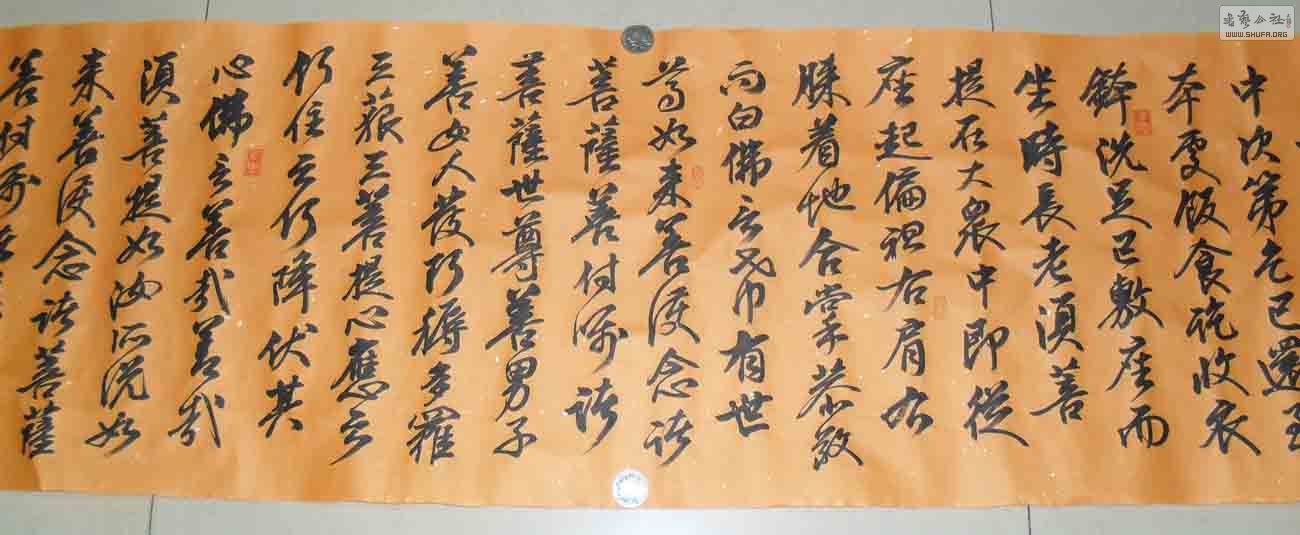 中次第乞已還至
本處飯食訖收衣
鉢洗足已敷座而
坐時長老須菩
提在大眾中即從
座起偏袒右肩右
膝着地合掌恭敬
向白佛言希有世
尊如来善護念諸
菩薩善付嘱諸
菩薩世尊善男子
善女人發阿耨多羅
三藐三菩提心應云
何住云何降伏其
心佛言善哉善哉
須菩提如汝所说如
来善護念諸菩薩
善付嘱
书艺公社
WWW.SHUFA.ORG